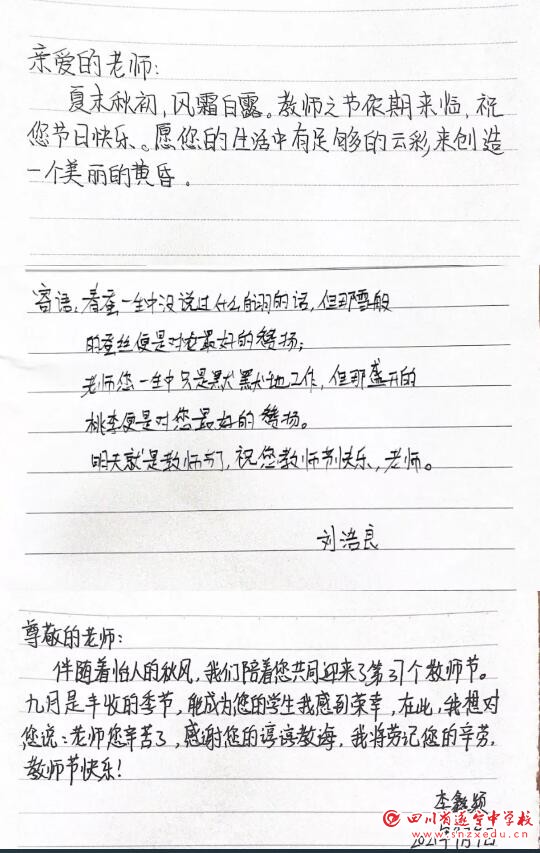 亲爱的老师:
夏末秋初,风霜白露。教师之节依期来临,祝
您节日快乐。愿您的生活中有足够的云彩,来创造
一个美丽的黄昏。
寄语:春蚕一生中没说过什么自诩的话,但那雪般
的蚕丝便是对它最好的赞扬;
老师您一生中只是默默地工作,但那盛开的
桃李便是对您最好的赞扬。
明天就是教师节了,祝您教师节快乐,老师。
刘浩良
尊敬的老师:
伴随着怡人的秋风,我们陪着您共同迎来了第37个教师节。
九月是丰收的季节,能成为您的学生我感到荣幸,在此,我想对
您说:老师您辛苦了,感谢您的谆谆教诲,我将劳记您的辛劳,
教师节快乐!
李鑫颖
四川省遂宁中学校
www.snzxedu.cn